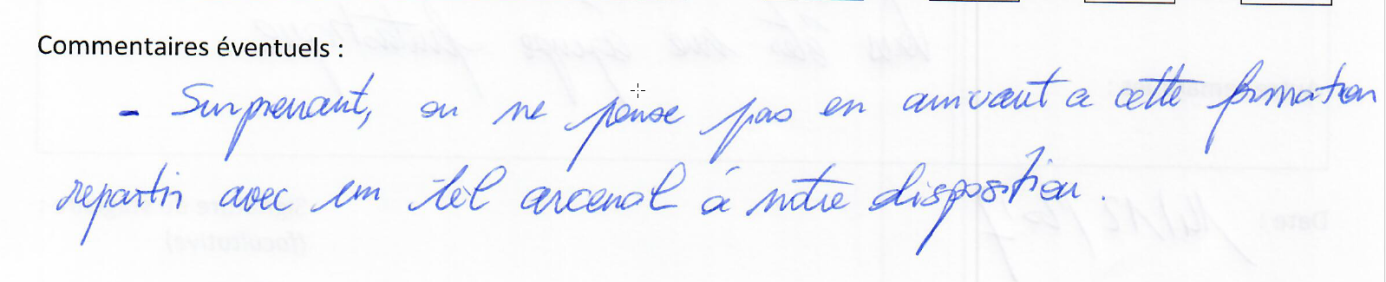 Commentaires éventuels :
- Surprenant, on ne pense pas en arrivant a cette formation
repartir avec un tel arcenal à notre disposition.